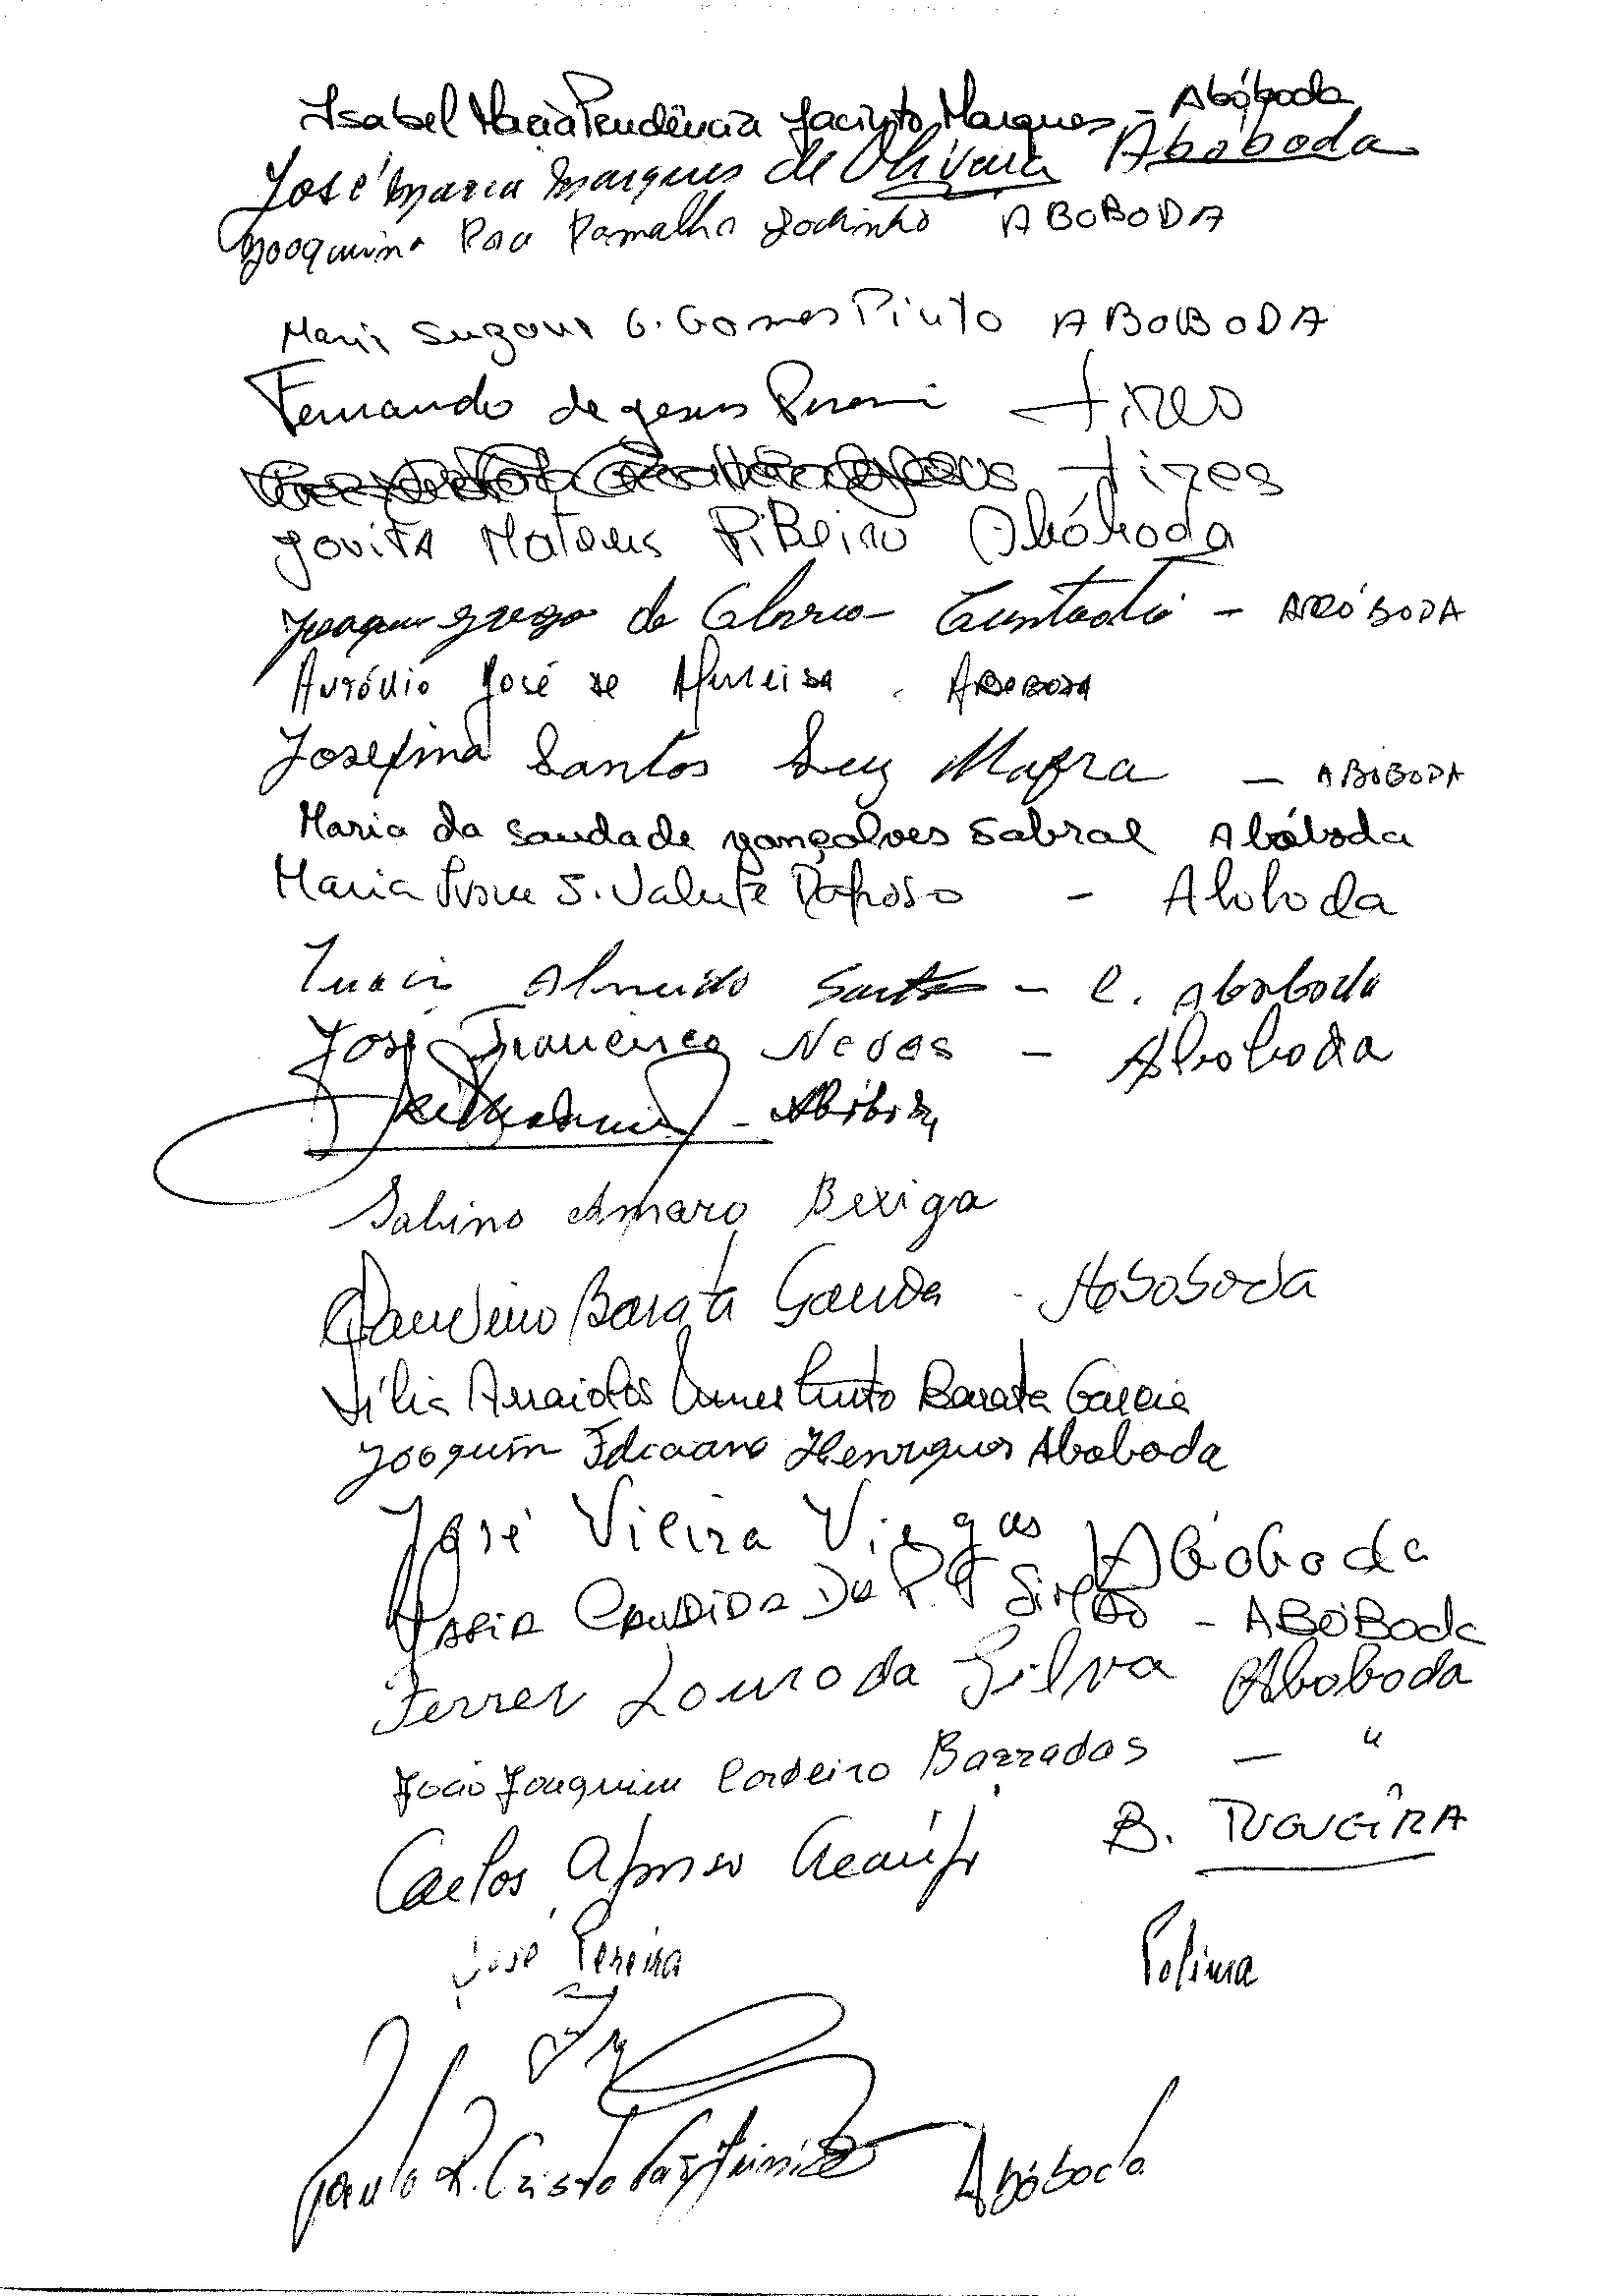 Isabel Maria Prudência Jacinto Marques - Abóboda
José Maria Marques de Oliveira Abóboda
Joaquina Ramalho ABOBODA
Maria Suzana G. Gomes Pinto ABOBODA
Fernando de Jesus Tires
Tires
Jovita Mateus Ribeiro Abóboda
Joaquim da Glória - ABÓBODA
António José de Almeida . ABOBODA
Josefina Santos Luz Mafra - ABOBODA
Maria da Saudade Gonçalves Sabral Abóboda
Maria S. Valente Raposo - Aboboda
Almeida Santos - C. Aboboda
José Francisco Neves - Aboboda
- Abóboda
Sabino Amaro Bexiga
Barata Aboboda
Lília Arraiolos Pinto Barata Garcia
Joaquim Henriques Aboboda
José Vieira Viegas Abóboda
Maria Candida Da P. Simão - ABÓBODA
Ferrer Louro da Silva Aboboda
João Joaquim Cordeiro Barradas - "
Carlos Afonso Araújo B.
José Pereira Polima
Paulo R. Cristo Abóboda